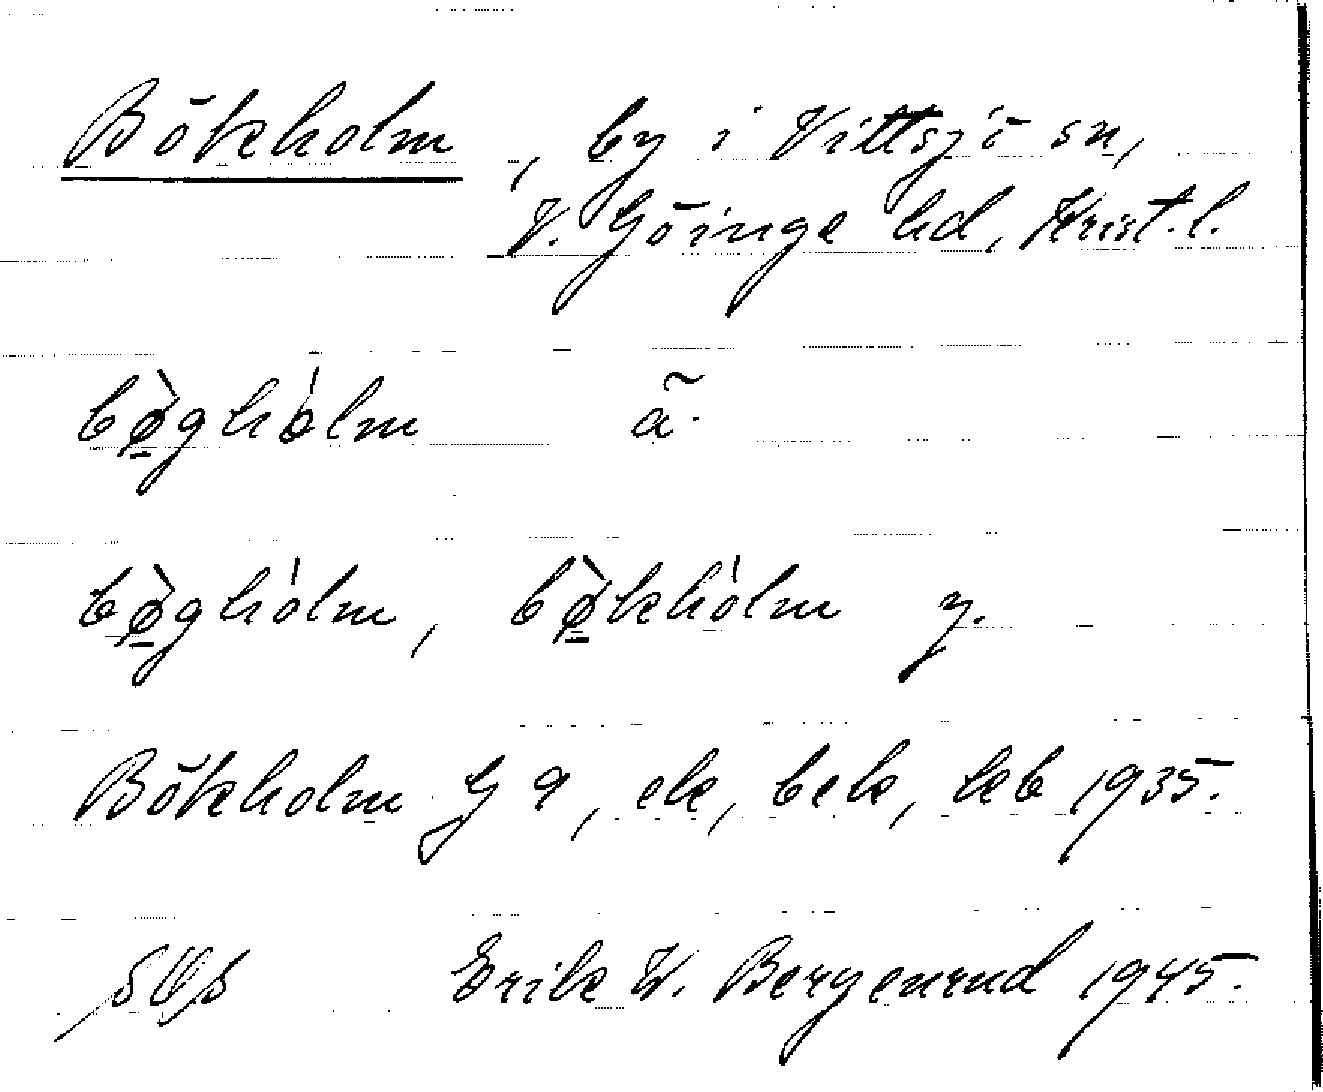 Bökholm, by i Vittsjö sn,
V. Göinge hd, Krist. l.
bø̱̀ghólm ã.
bø̱̀ghólm, bø̱̀khólm y.
Bökholm G 9, ek, bek, keb 1935.
Erik W. Bergenrud 1945.